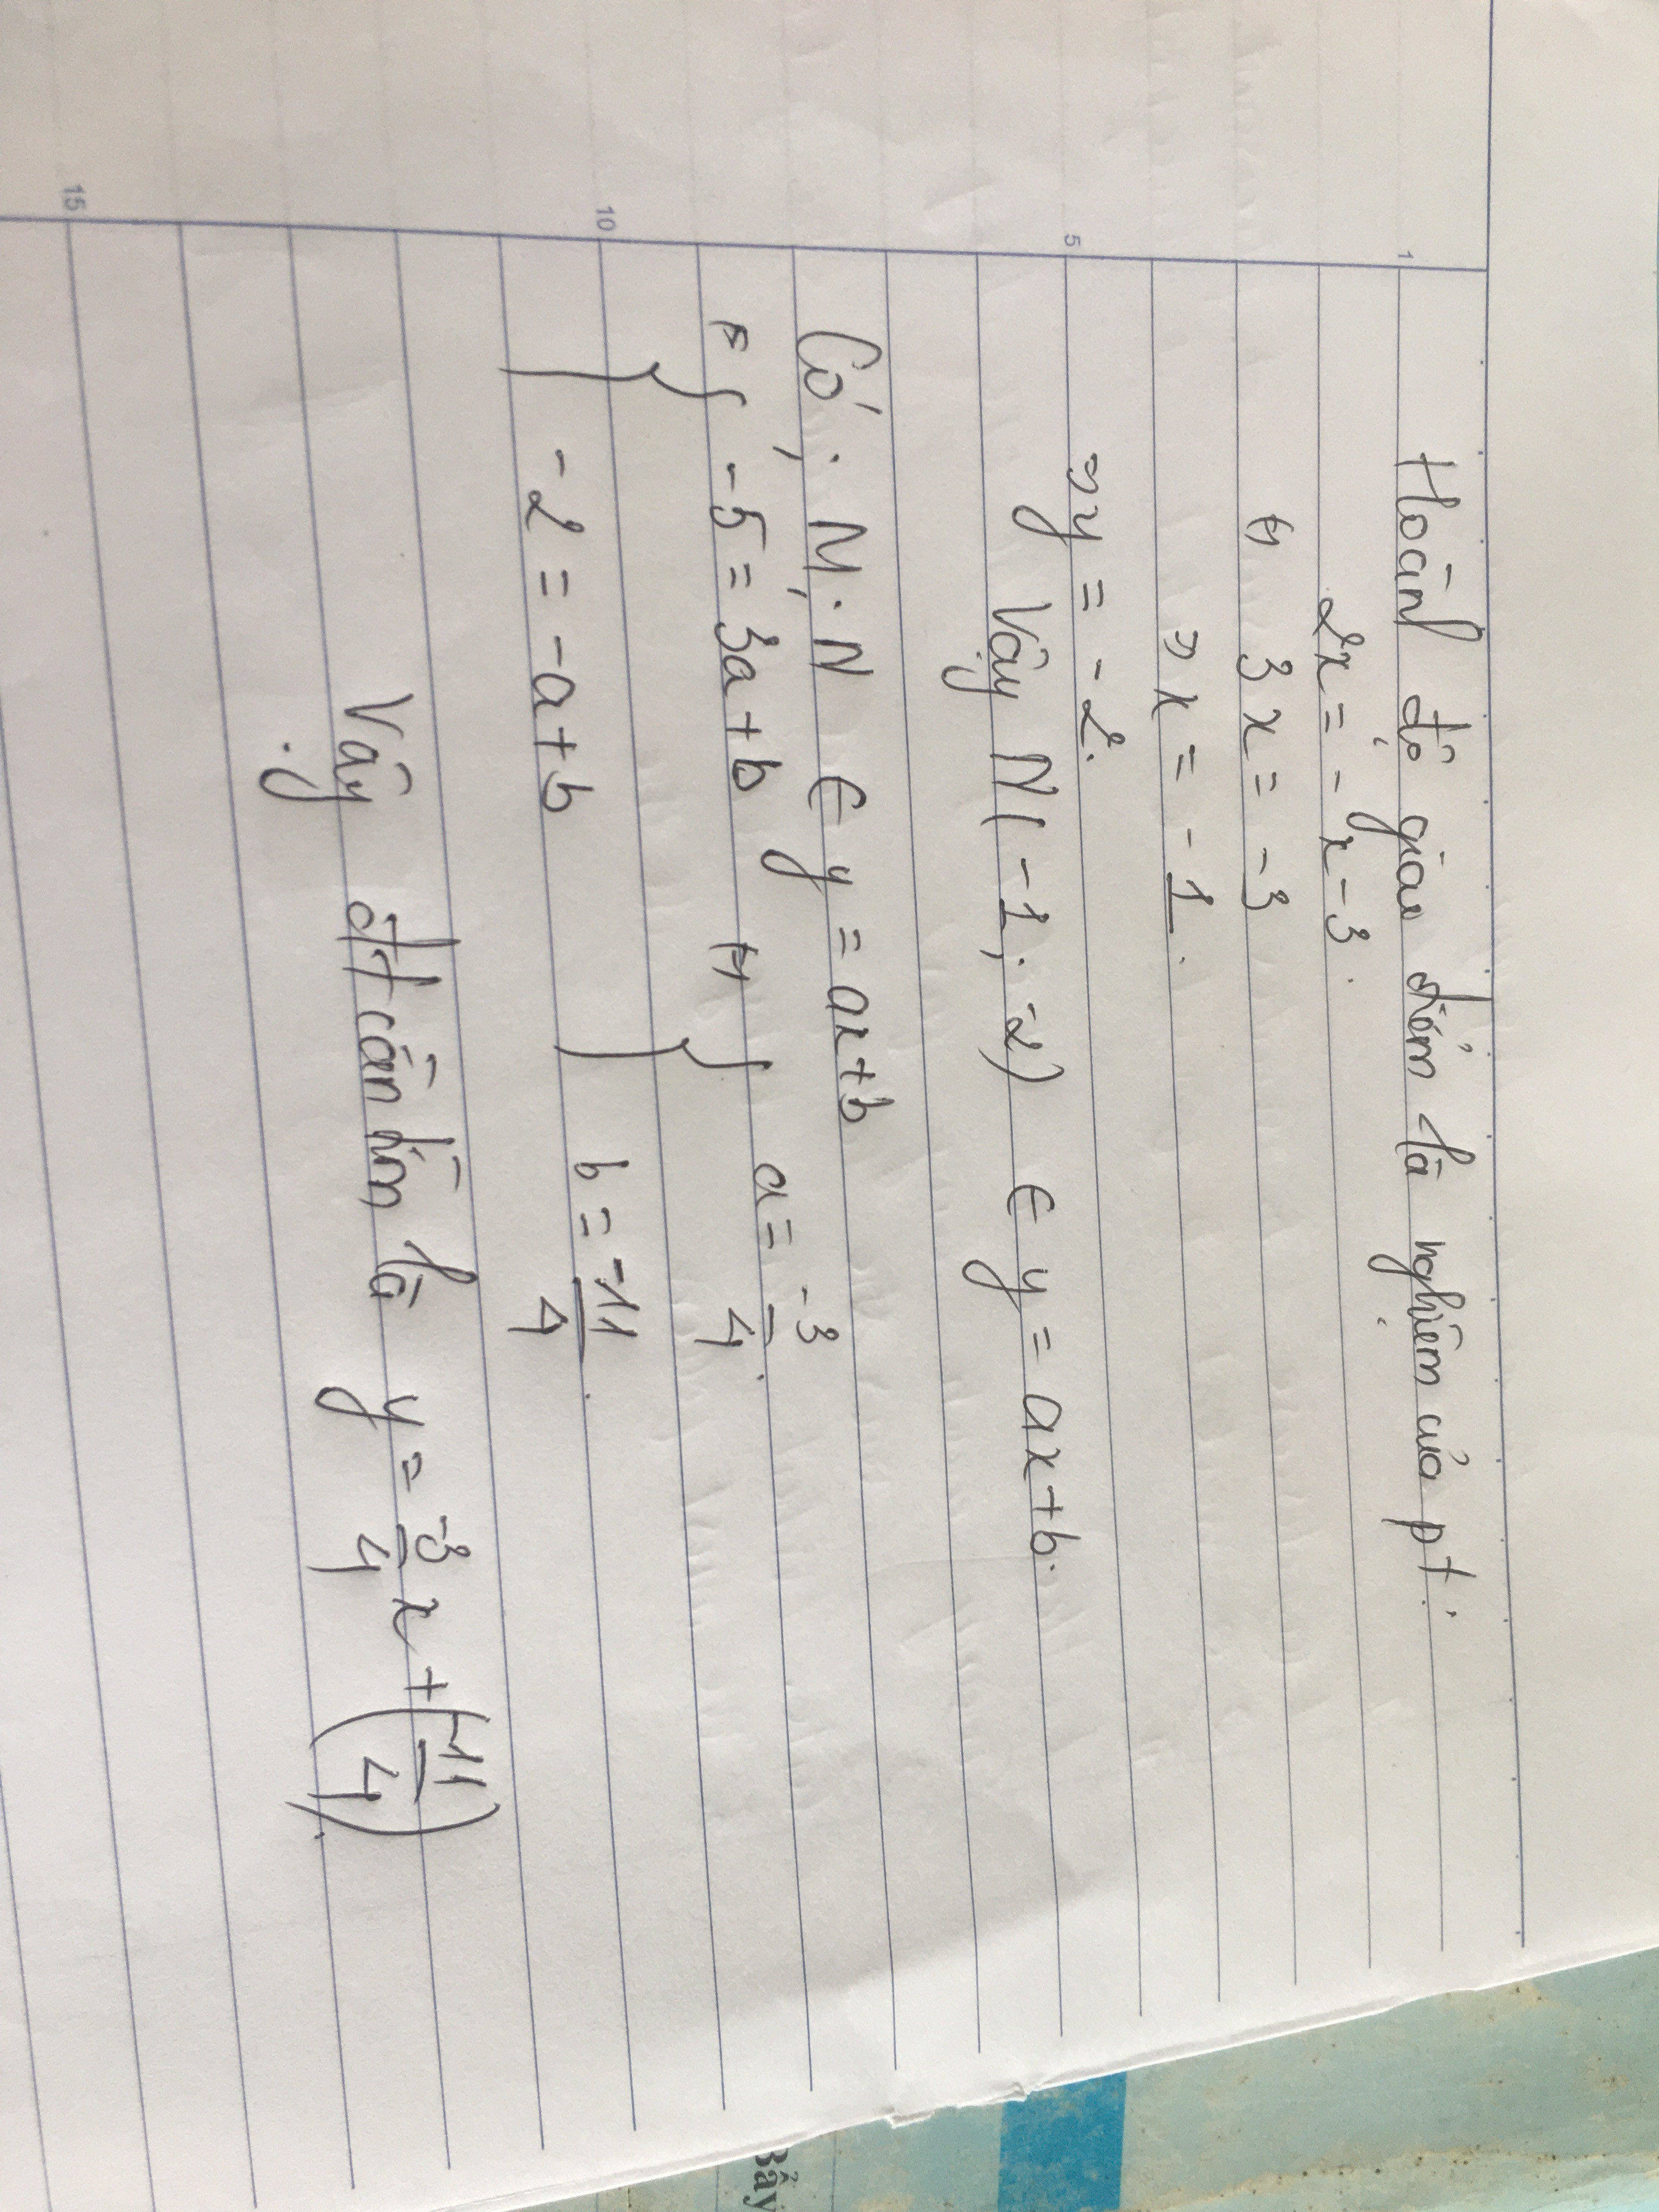 Hoành độ giao điểm là nghiệm của pt:
2x = -x-3.
⇔ 3x = -3
⇒ x = -1.
⇒ y = -2.
Vậy N(-1; -2) ∈ y = ax+b.
Có: M; N ∈ y = ax+b
⇒ { -5 = 3a+b ⇔ { a = -3/4.
-2 = -a+b b = -11/4.
Vậy đt cần tìm là y = -3/4 x + (-11/4).
1
5
10
15
Bảy